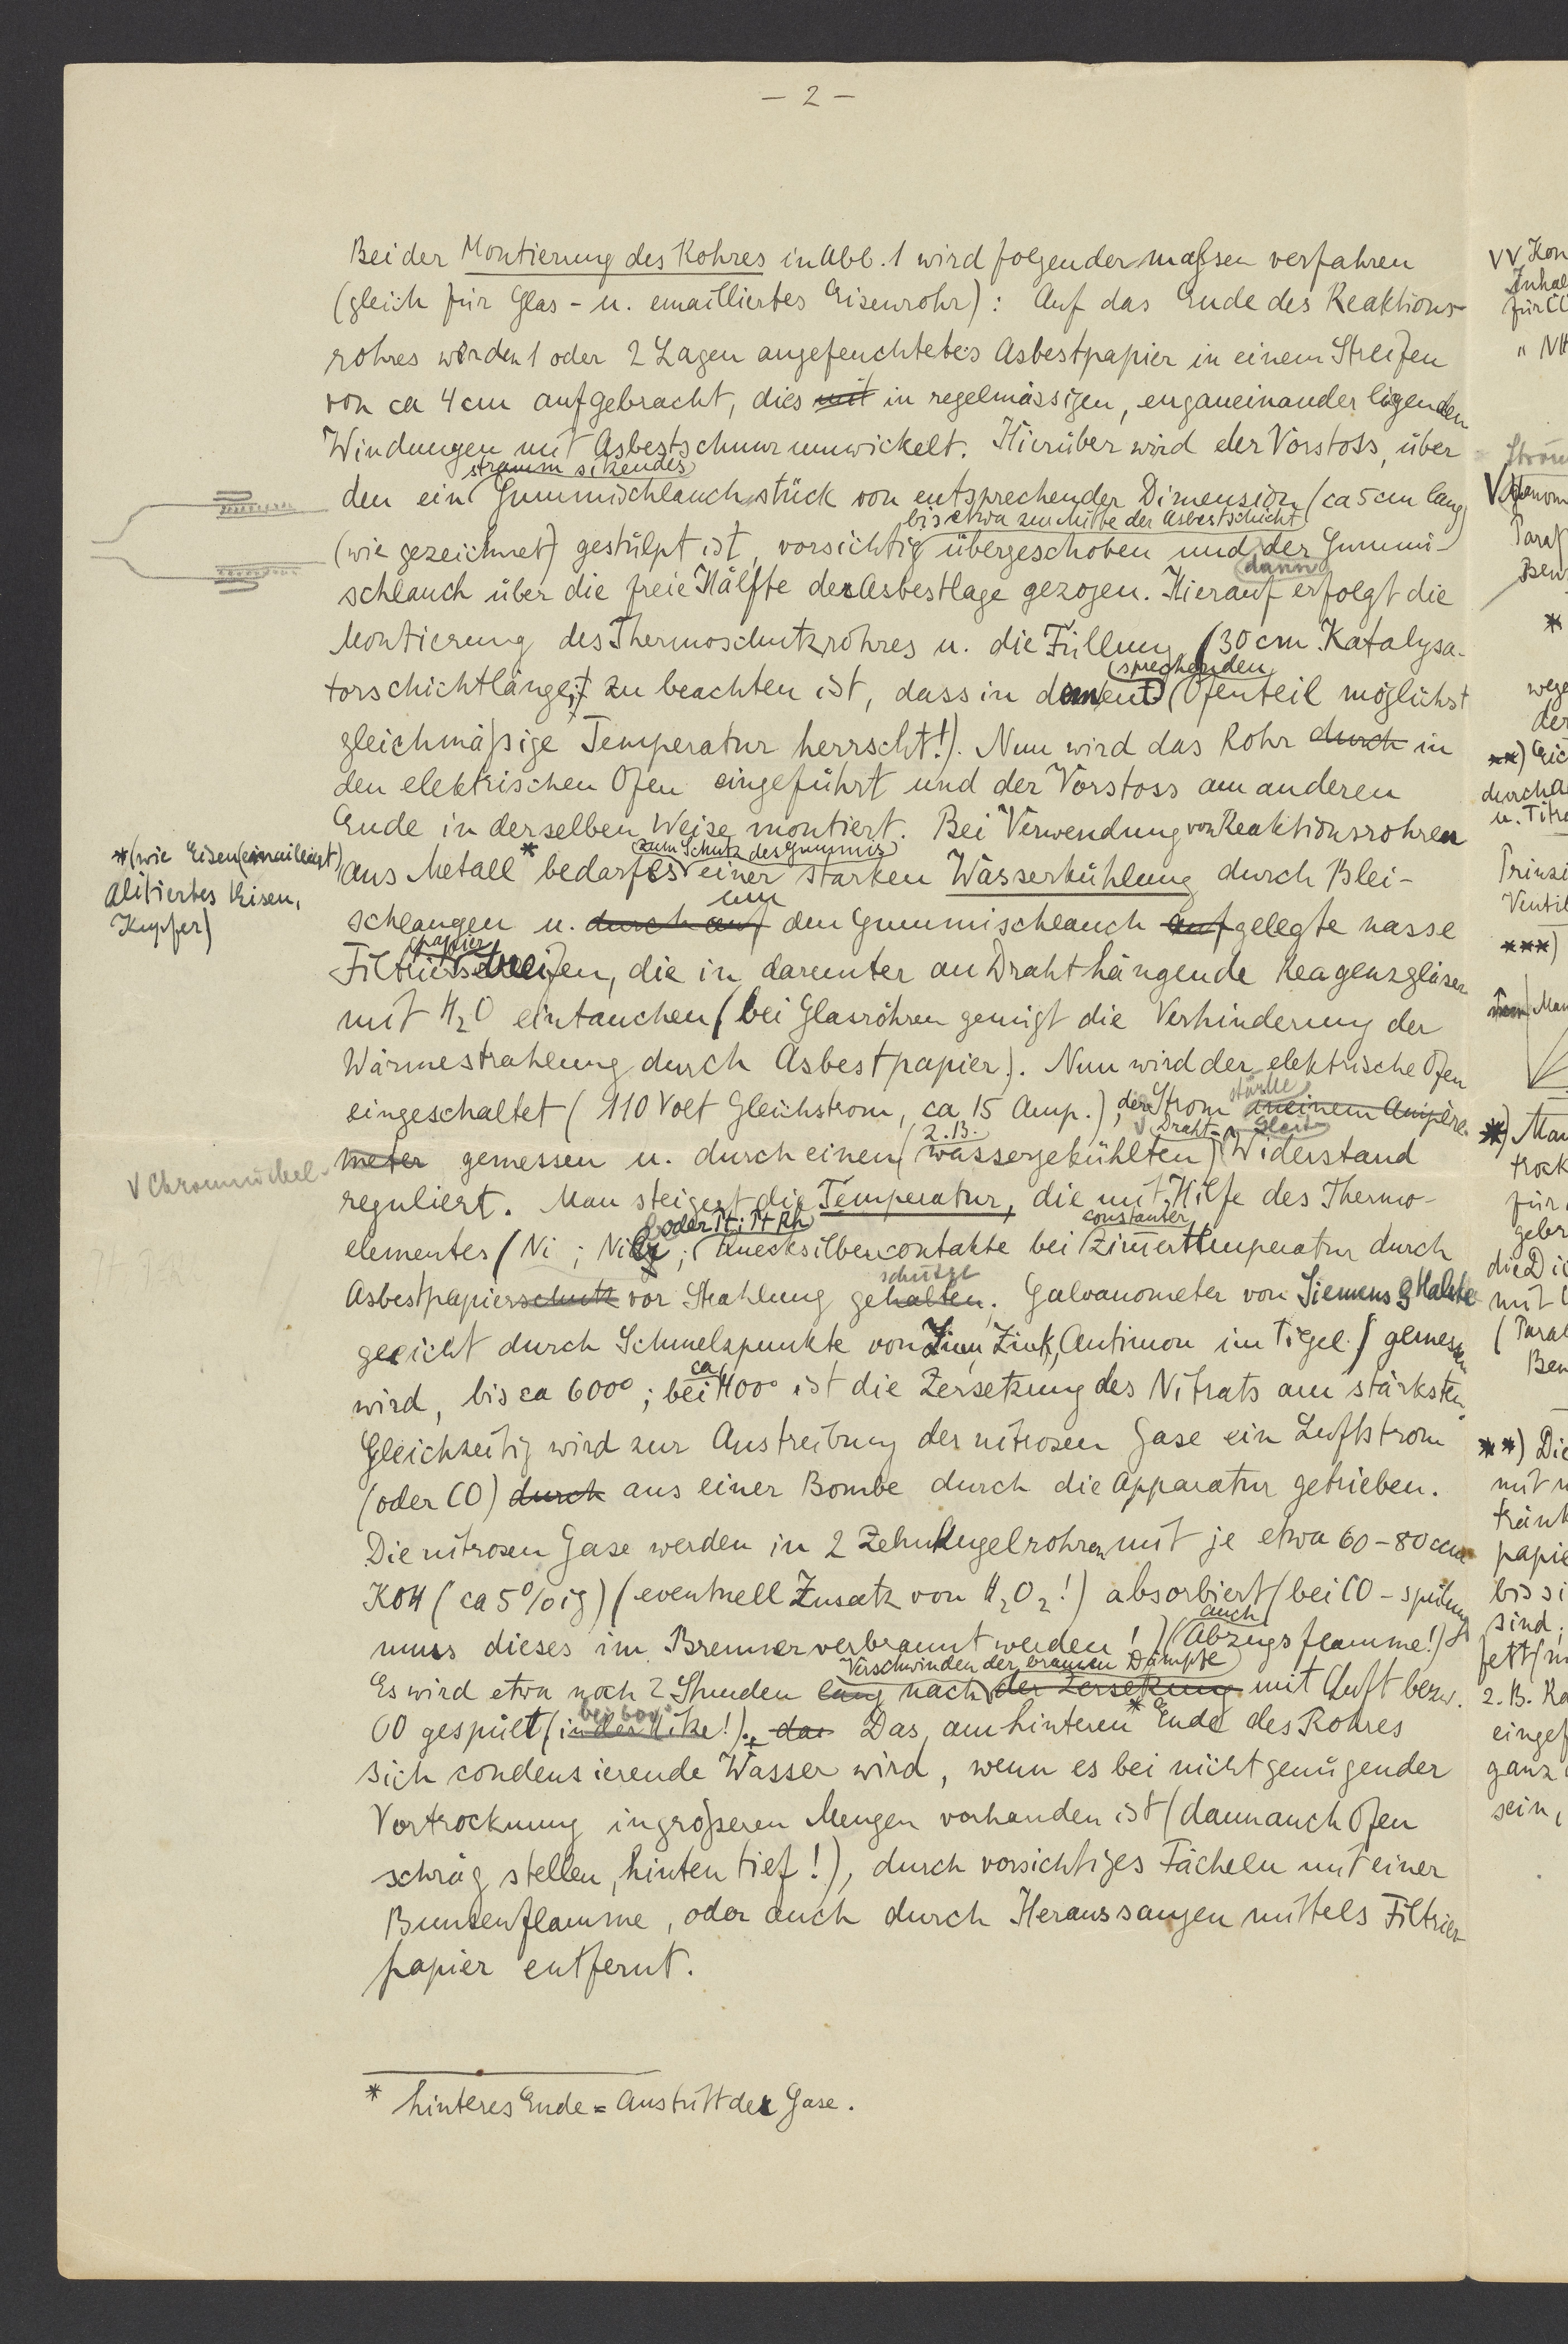 — 2 —
Bei der Montierung des Rohres in Abb. 1 wird folgendermaßen verfahren
(gleich für Glas- u. emailliertes Eisenrohr): Auf das Ende des Reaktions-
rohres werden 1 oder 2 Lagen angefeuchtetes Asbestpapier in einem Streifen
von ca 4 cm aufgebracht, dies mit in regelmässigen, enganeinander liegenden
Windungen mit Asbestschnur umwickelt. Hierüber wird der Vorstoss, über
stramm sitzendes
den ein Gummischlauchstück von entsprechender Dimension (ca 5 cm lang)
bis etwa zur Mitte der Asbestschicht
(wie gezeichnet) gestülpt ist, vorsichtig übergeschoben und der Gummi-
dann
schlauch über die freie Hälfte der Asbestlage gezogen. Hierauf erfolgt die
Montierung des Thermoschutzrohres u. die Füllung (30 cm Katalysa-
sprechenden
torschichtlänge; zu beachten ist, dass in dem ent Ofenteil möglichst
gleichmäßige Temperatur herrscht!). Nun wird das Rohr durch in
den elektrischen Ofen eingeführt und der Vorstoss am anderen
Ende in derselben Weise montiert. Bei Verwendung von Reaktionsrohren
zum Schutz des Gummis
aus Metall * bedarf es einer starken Wasserkühlung durch Blei-
*(wie Eisen (emailliert),
alitiertes Eisen,
Kupfer)
um
schlangen u. durch auf den Gummischlauch aufgelegte nasse
papier
Filtrierstreifen, die in darunter an Draht hängende Reagenzgläser
mit H₂O eintauchen (bei Glasröhren genügt die Verhinderung der
Wärmestrahlung durch Asbestpapier). Nun wird der elektrische Ofen
stärke
eingeschaltet (110 Volt Gleichstrom, ca 15 Amp.), der Strom an einem Ampère-
z.B. Draht- Gleit-
meter gemessen u. durch einen wassergekühlten Widerstand
V Chromnickel-
reguliert. Man steigert die Temperatur, die mit Hilfe des Thermo-
oder Pt; Pt Rh constanter
elementes (Ni; NiCr; Quecksilbercontakte bei Zimmertemperatur durch
schützt
Asbestpapierschutz vor Strahlung gehalten. Galvanometer von Siemens & Halske
geeicht durch Schmelzpunkte von Zinn, Zink, Antimon im Tigel) gemessen
ca
wird, bis ca 600°; bei 400° ist die Zersetzung des Nitrats am stärksten.
Gleichzeitig wird zur Austreibung der nitrosen Gase ein Luftstrom
(oder CO) durch aus einer Bombe durch die Apparatur getrieben.
Die nitrosen Gase werden in 2 Zehnkugelrohren mit je etwa 60-80 ccm
KOH (ca 5%ig) (eventuell Zusatz von H₂O₂!) absorbiert (bei CO-spülung
auch
muss dieses im Brenner verbrannt werden!) (Abzugsflamme!)
Verschwinden der braunen Dämpfe
Es wird etwa noch 2 Stunden lang nach der Zersetzung mit Luft bezw.
bei 600°
CO gespült (in der Hitze!). das Das, am hinteren * Ende des Rohres
sich condensierende Wasser wird, wenn es bei nicht genügender
Vortrocknung in größeren Mengen vorhanden ist (dann auch Ofen
schräg stellen, hinten tief!), durch vorsichtiges Fächeln mit einer
Bunsenflamme, oder auch durch Heraussaugen mittels Filtrier-
papier entfernt.
* hinteres Ende = Austritt der Gase.